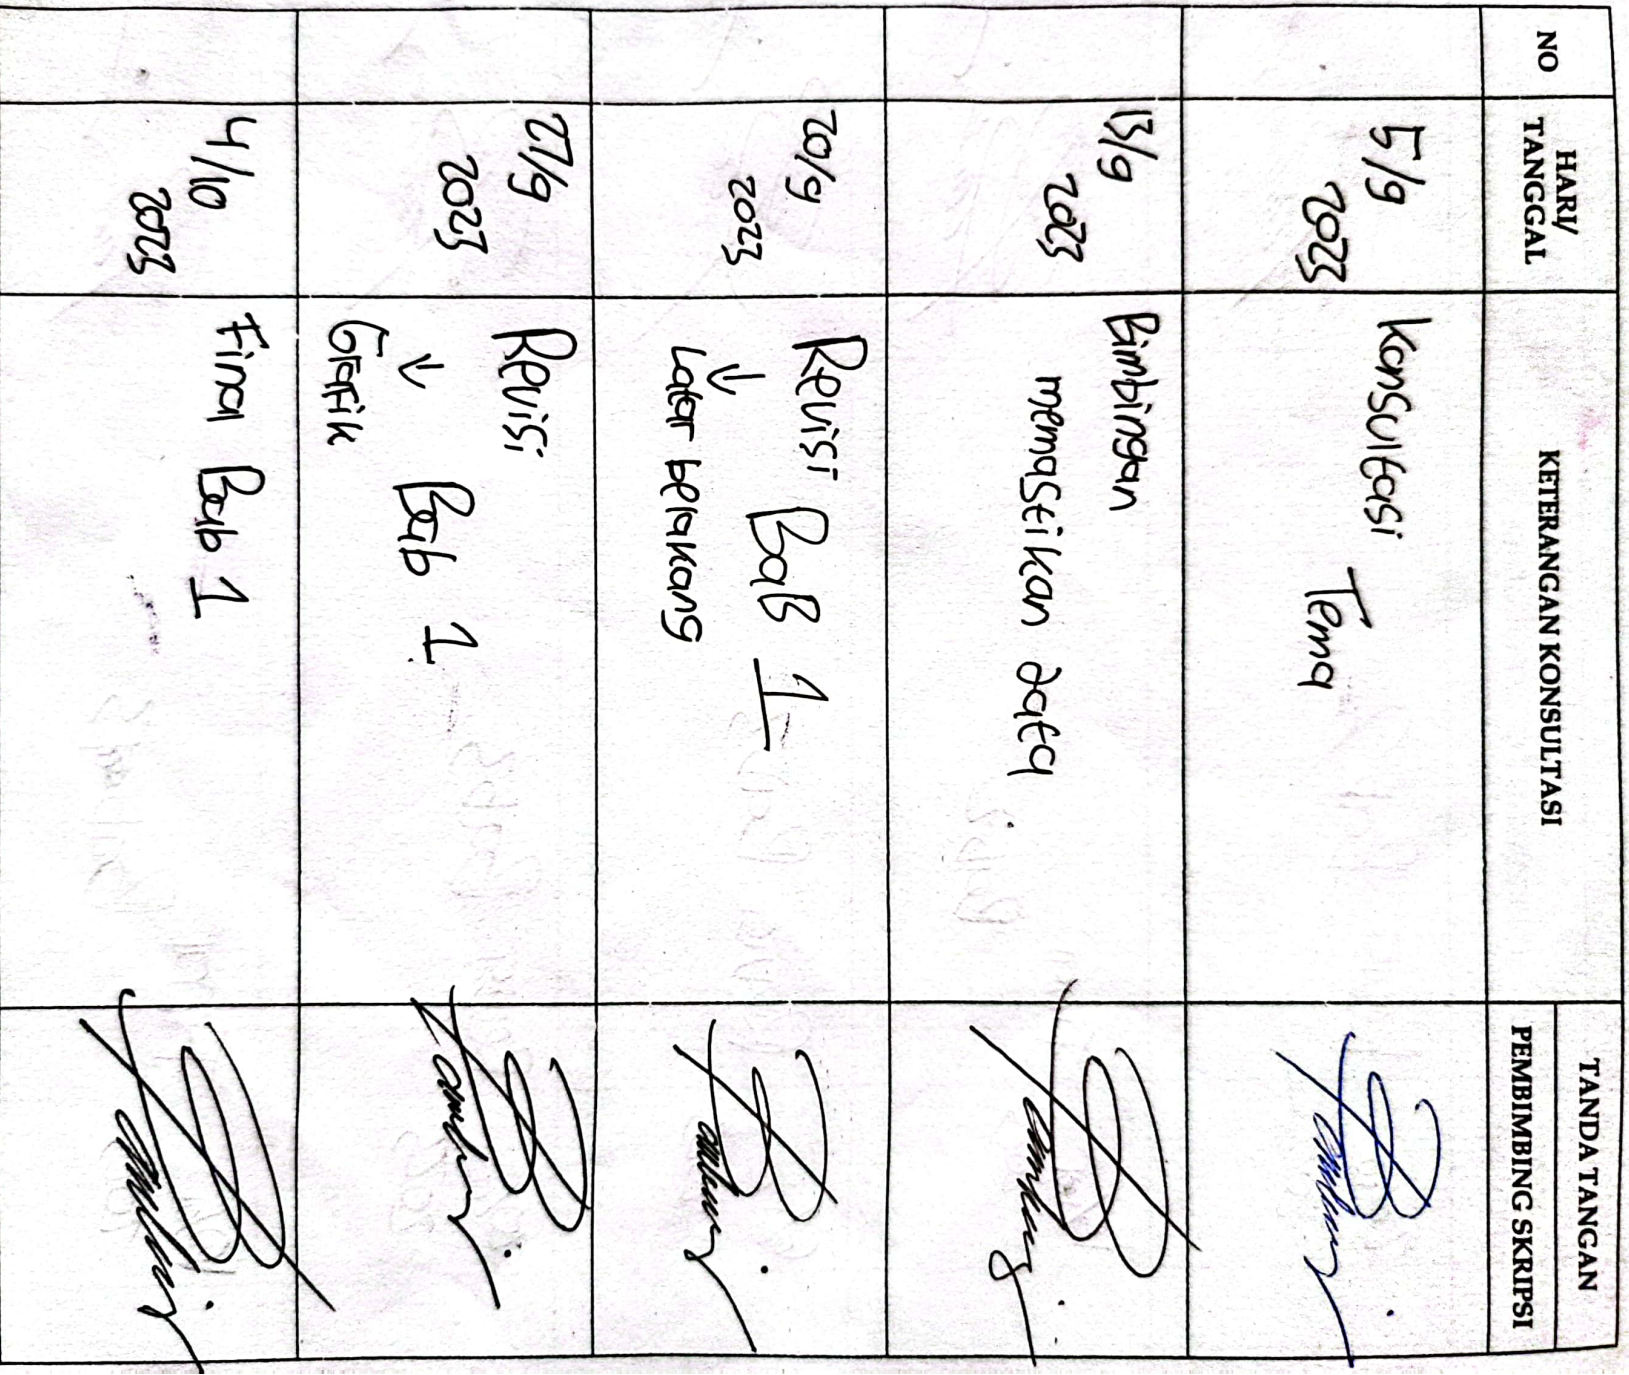 NO
HARI/
TANGGAL
KETERANGAN KONSULTASI
TANDA TANGAN
PEMBIMBING SKRIPSI
5/9
2023
Konsultasi
Tema
13/9
2023
Bimbingan
memastikan data
20/9
2023
Revisi BaB 1
↓
Latar belakang
27/9
2023
Revisi Bab 1
↓
Grafik
4/10
2023
Final Bab 1